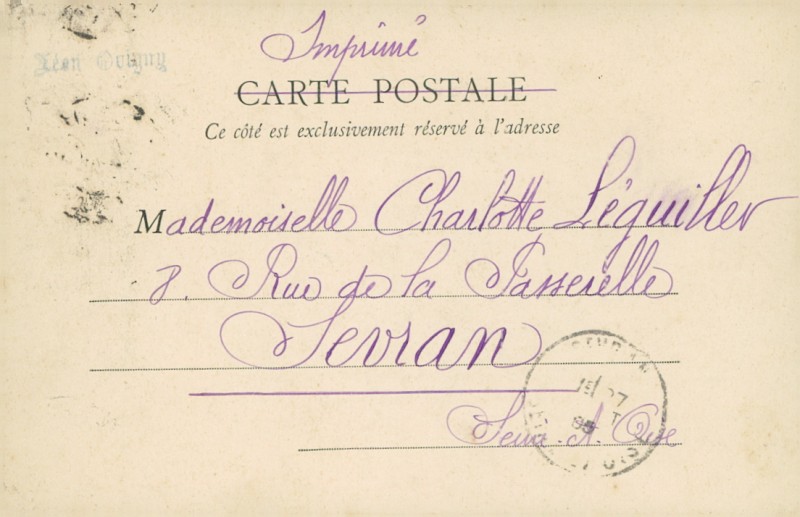 Imprimé
Léon Quigny
CARTE POSTALE
Ce côté est exclusivement réservé à l'adresse
Mademoiselle Charlotte Léguiller
8. Rue de la Passerelle
Sevran
SEVRAN
Seine et Oise